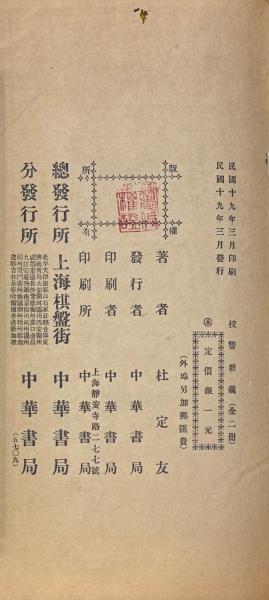 民國十九年三月印刷
民國十九年三月發行
校讐新義(全二冊)
定價銀一元
(外埠另加郵匯費)
版權所有
著者 杜定友
發行者 中華書局
印刷者 中華書局
印刷所 上海靜安寺路二七七號 中華書局
總發行所 上海棋盤街 中華書局
分發行所 中華書局
(五七〇九)